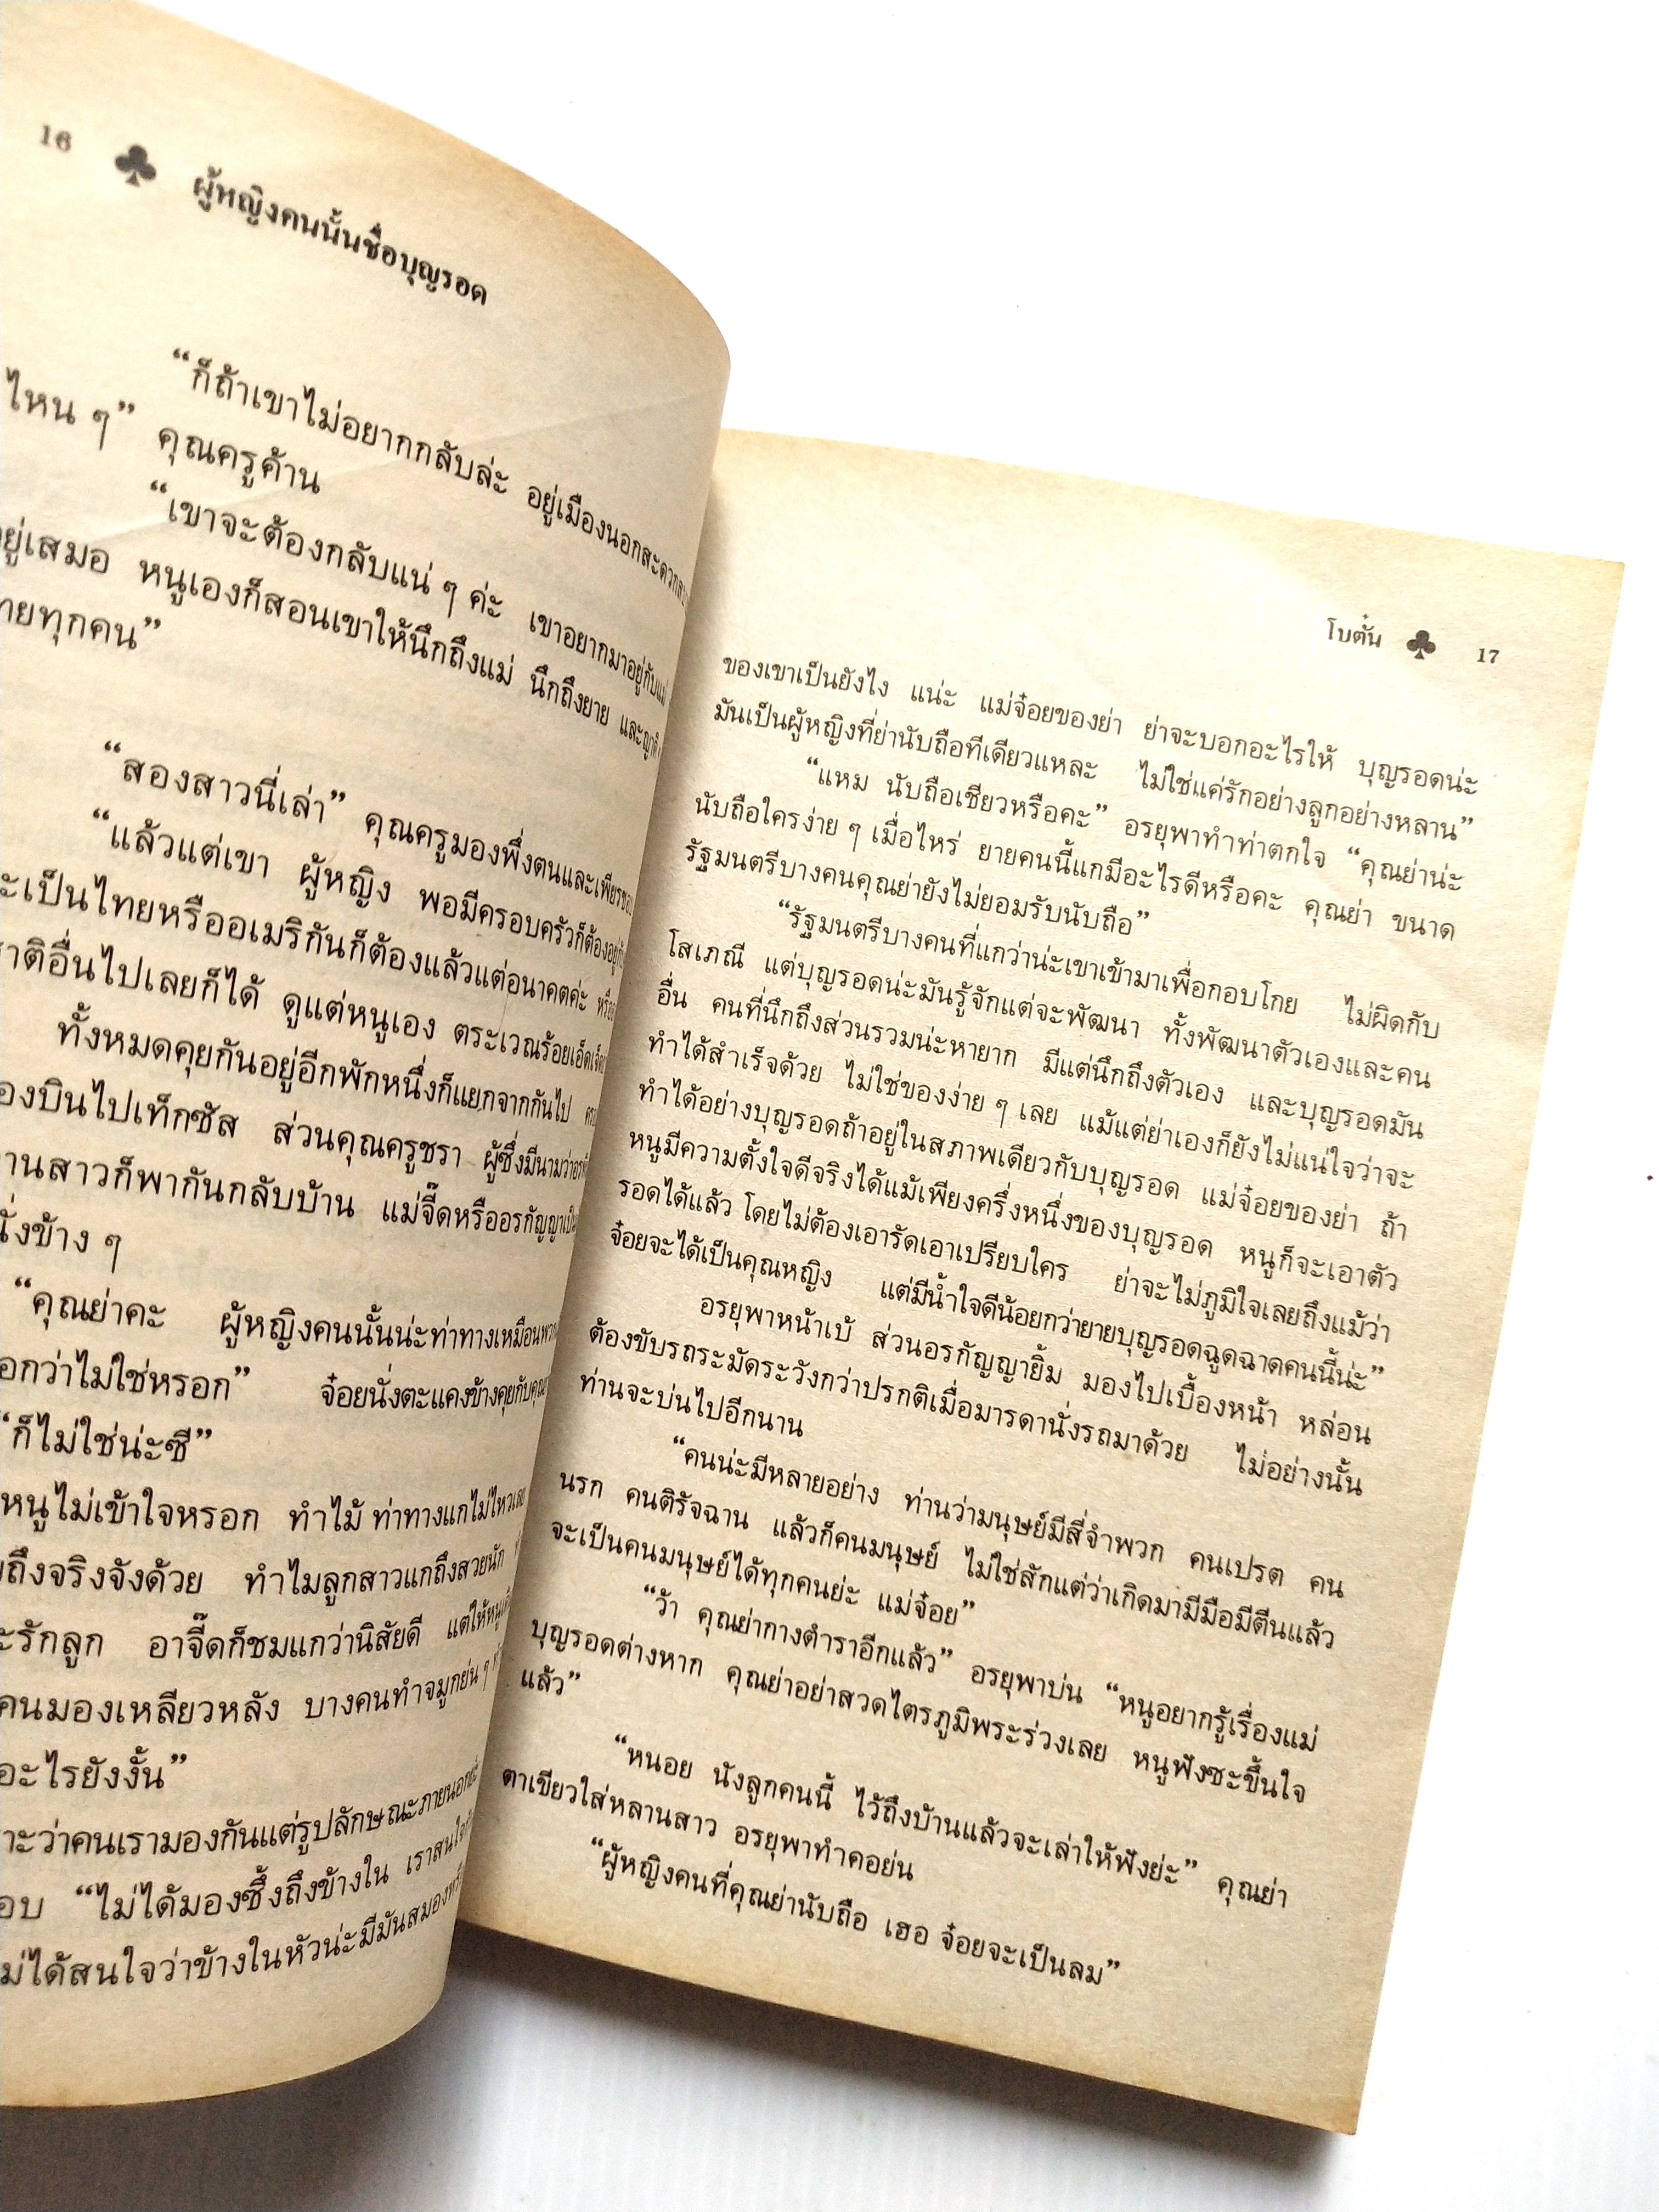 16 ♣ ผู้หญิงคนนั้นชื่อบุญรอด
“ก็ถ้าเขาไม่อยากกลับล่ะ อยู่เมืองนอกสะดวก
ไหน ๆ” คุณครูค้าน
“เขาจะต้องกลับแน่ ๆ ค่ะ เขาอยากมาอยู่กับแม่
อยู่เสมอ หนูเองก็สอนเขาให้นึกถึงแม่ นึกถึงยาย และญาติ
ทุกคน”
“สองสาวนี่เล่า” คุณครูมองพึ่งตนและเพียร
“แล้วแต่เขา ผู้หญิง พอมีครอบครัวก็ต้อง
เป็นไทยหรืออเมริกันก็ต้องแล้วแต่อนาคตค่ะ
ชาติอื่นไปเลยก็ได้ ดูแต่หนูเอง ตระเวณร้อยเอ็ด
ทั้งหมดคุยกันอยู่อีกพักหนึ่งก็แยกจากกันไป
บินไปเท็กซัส ส่วนคุณครูชรา ผู้ซึ่งมีนามว่า
สาวก็พากันกลับบ้าน แม่จี๊ดหรืออรกัญญา
นั่งข้าง ๆ
“คุณย่าคะ ผู้หญิงคนนั้นน่ะท่าทางเหมือน
กว่าไม่ใช่หรอก” จ๋อยนั่งตะแคงข้างคุยกับคุณ
“ก็ไม่ใช่น่ะซี”
หนูไม่เข้าใจหรอก ทำไม้ ท่าทางแกไม่ไหว
ถึงจริงจังด้วย ทำไมลูกสาวแกถึงสวยนัก
รักลูก อาจี๊ดก็ชมแกว่านิสัยดี แต่ให้หนู
คนมองเหลียวหลัง บางคนทำจมูกย่น ๆ
อะไรยังงั้น”
ว่าคนเรามองกันแต่รูปลักษณะภายนอก
“ไม่ได้มองซึ้งถึงข้างใน เราสนใจ
ไม่ได้สนใจว่าข้างในหัวน่ะมีมันสมอง
โบตั๋น ♣ 17
ของเขาเป็นยังไง แน่ะ แม่จ๋อยของย่า ย่าจะบอกอะไรให้ บุญรอดน่ะ
มันเป็นผู้หญิงที่ย่านับถือทีเดียวแหละ ไม่ใช่แค่รักอย่างลูกอย่างหลาน”
“แหม นับถือเชียวหรือคะ” อรยุพาทำท่าตกใจ “คุณย่าน่ะ
นับถือใครง่าย ๆ เมื่อไหร่ ยายคนนี้แกมีอะไรดีหรือคะ คุณย่า ขนาด
รัฐมนตรีบางคนคุณย่ายังไม่ยอมรับนับถือ”
“รัฐมนตรีบางคนที่แกว่าน่ะเขาเข้ามาเพื่อกอบโกย ไม่ผิดกับ
โสเภณี แต่บุญรอดน่ะมันรู้จักแต่จะพัฒนา ทั้งพัฒนาตัวเองและคน
อื่น คนที่นึกถึงส่วนรวมน่ะหายาก มีแต่นึกถึงตัวเอง และบุญรอดมัน
ทำได้สำเร็จด้วย ไม่ใช่ของง่าย ๆ เลย แม้แต่ย่าเองก็ยังไม่แน่ใจว่าจะ
ทำได้อย่างบุญรอดถ้าอยู่ในสภาพเดียวกับบุญรอด แม่จ๋อยของย่า ถ้า
หนูมีความตั้งใจดีจริงได้แม้เพียงครึ่งหนึ่งของบุญรอด หนูก็จะเอาตัว
รอดได้แล้ว โดยไม่ต้องเอารัดเอาเปรียบใคร ย่าจะไม่ภูมิใจเลยถึงแม้ว่า
จ๋อยจะได้เป็นคุณหญิง แต่มีน้ำใจดีน้อยกว่ายายบุญรอดฉูดฉาดคนนี้น่ะ”
อรยุพาหน้าเบ้ ส่วนอรกัญญายิ้ม มองไปเบื้องหน้า หล่อน
ต้องขับรถระมัดระวังกว่าปรกติเมื่อมารดานั่งรถมาด้วย ไม่อย่างนั้น
ท่านจะบ่นไปอีกนาน
“คนน่ะมีหลายอย่าง ท่านว่ามนุษย์มีสี่จำพวก คนเปรต คน
นรก คนติรัจฉาน แล้วก็คนมนุษย์ ไม่ใช่สักแต่ว่าเกิดมามีมือมีตีนแล้ว
จะเป็นคนมนุษย์ได้ทุกคนย่ะ แม่จ๋อย”
“ว้า คุณย่ากางตำราอีกแล้ว” อรยุพาบ่น “หนูอยากรู้เรื่องแม่
บุญรอดต่างหาก คุณย่าอย่าสวดไตรภูมิพระร่วงเลย หนูฟังซะขึ้นใจ
แล้ว”
“หนอย นังลูกคนนี้ ไว้ถึงบ้านแล้วจะเล่าให้ฟังย่ะ” คุณย่า
ตาเขียวใส่หลานสาว อรยุพาทำคอย่น
“ผู้หญิงคนที่คุณย่านับถือ เฮอ จ๋อยจะเป็นลม”